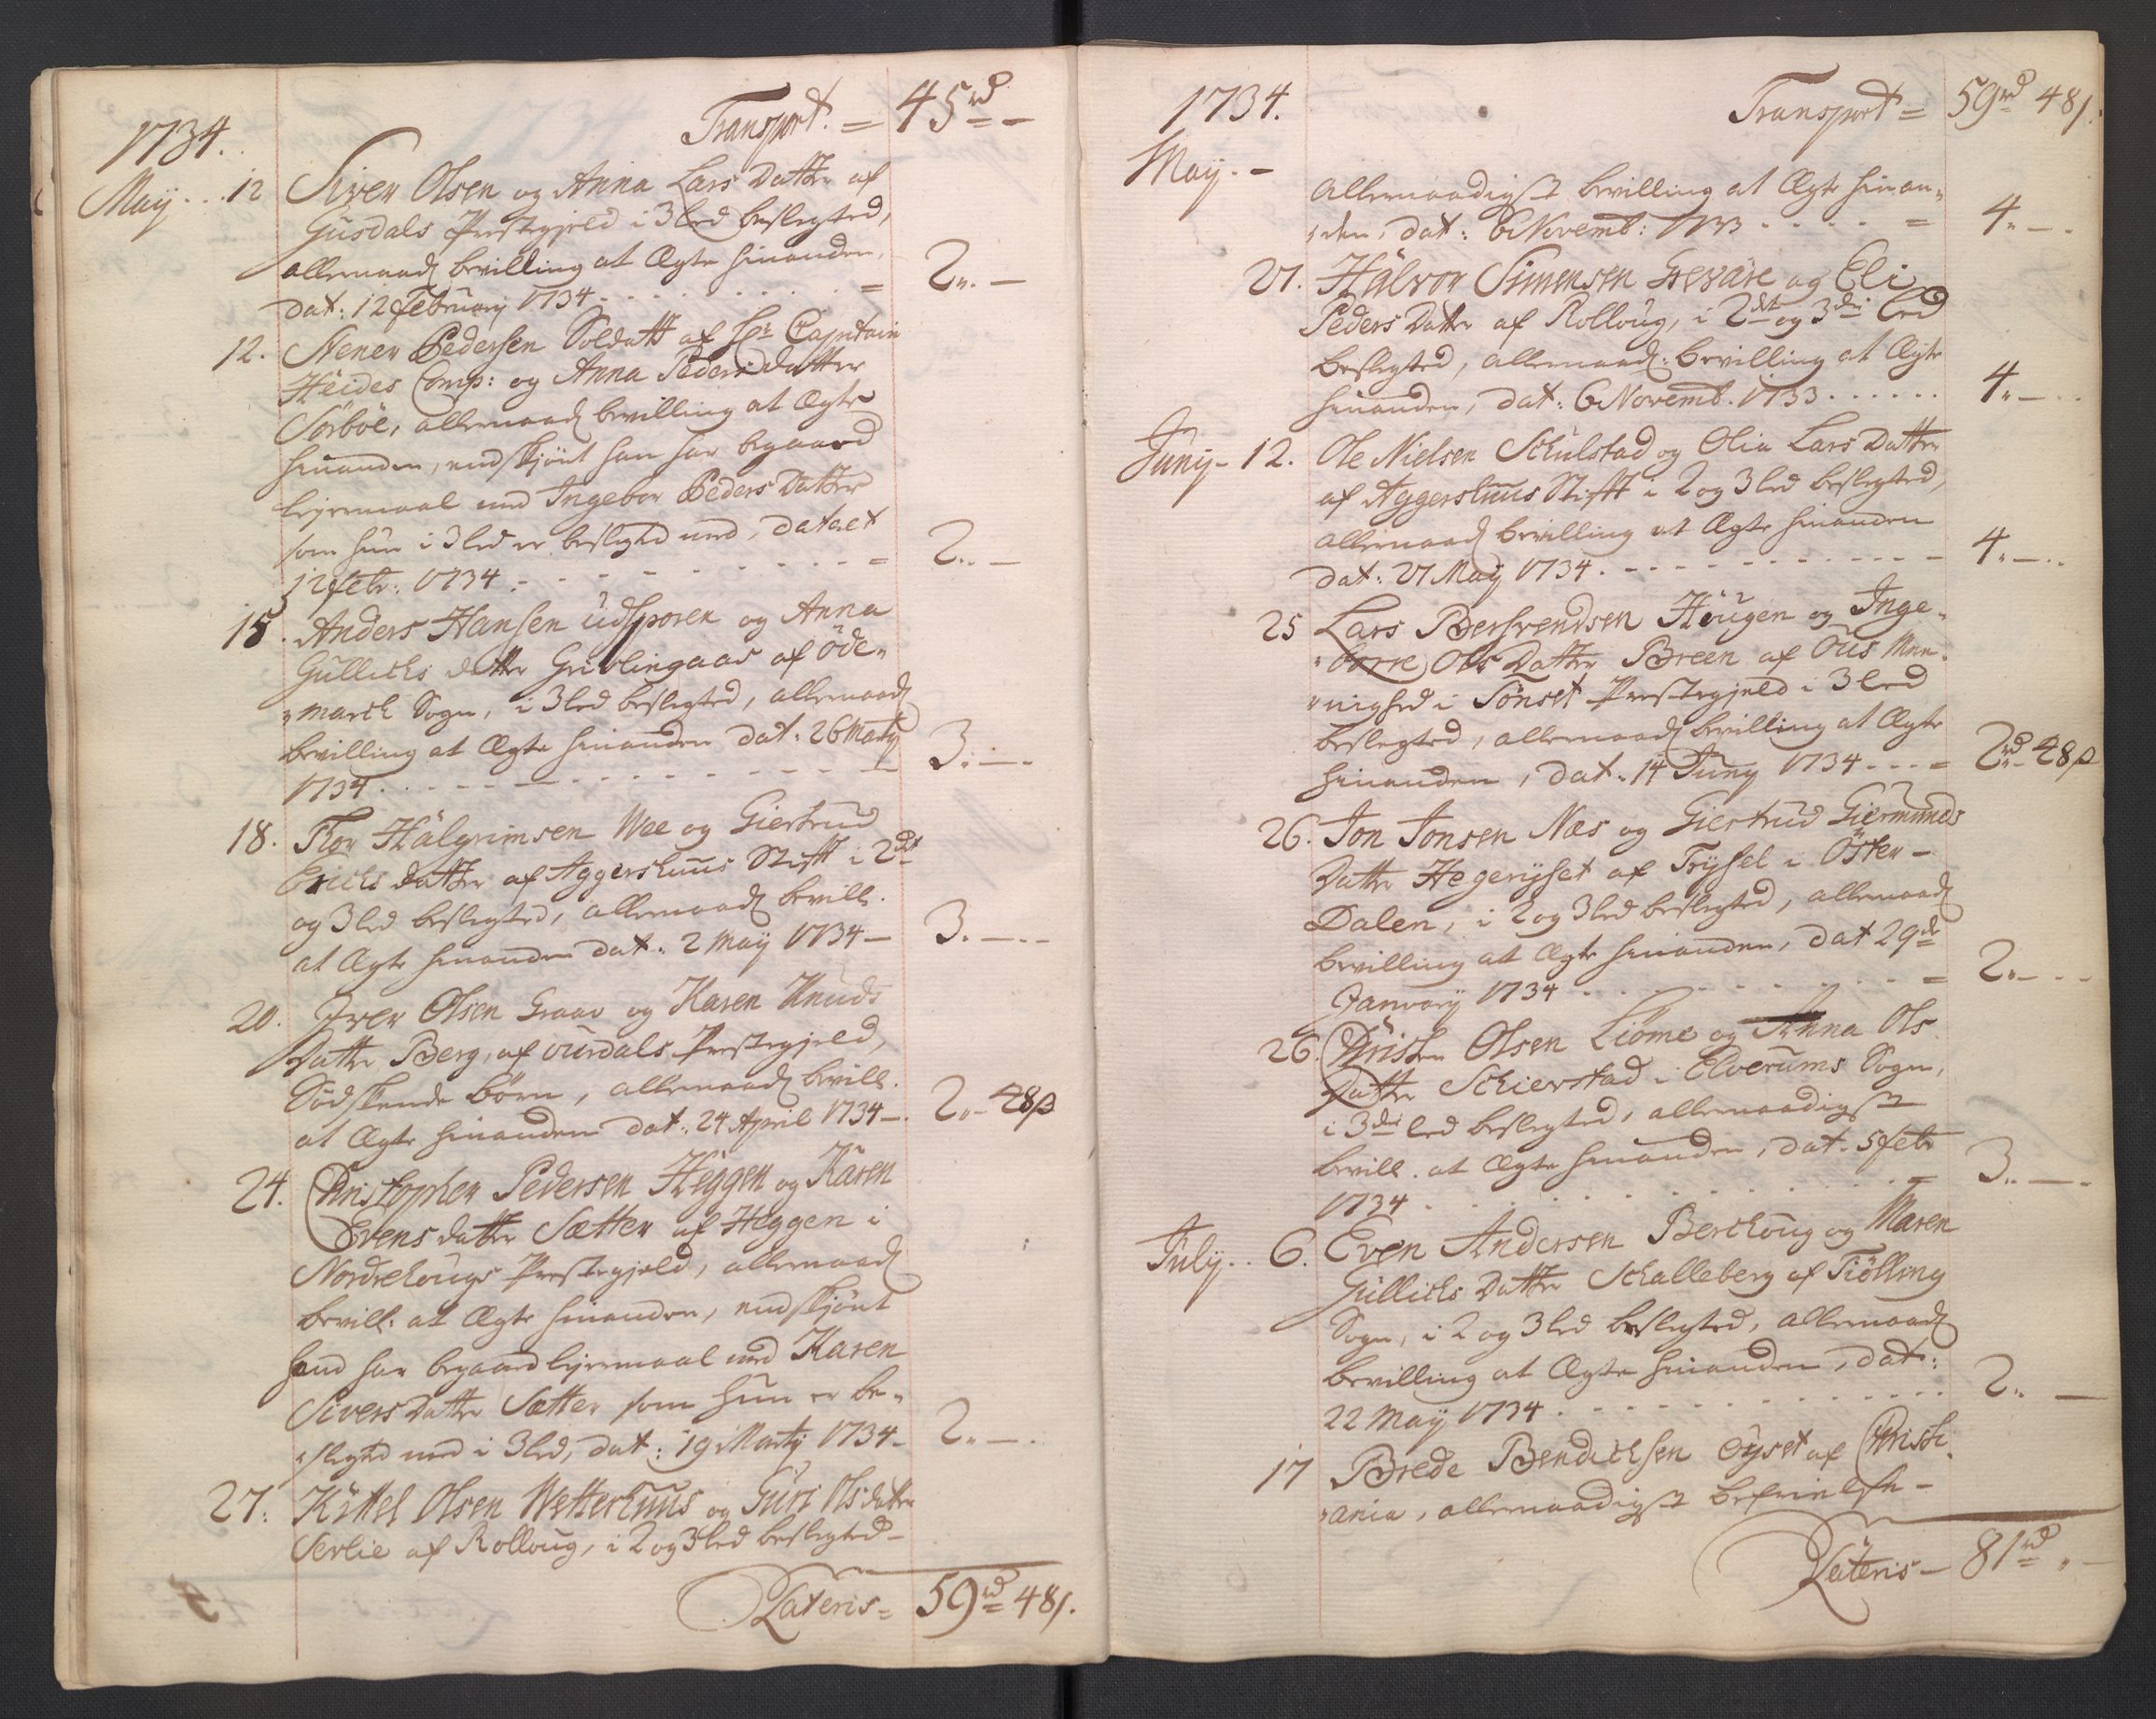 Transport. = 45 rd -
1734.
May. . . 12 Siver Olsen og Anna Lars Datter af
Gusdals Prestegjeld i 3 led beslegted,
allernaad bevilling at Ægte hinanden,
dat: 12 February 1734 - - - = 2 „ -
12. Stener Pedersen Soldatt af Hr Capitain
Heides Comp: og Anna Peders datter
Sörböe, allernaad bevilling at Ægte
hinanden, endskjönt han har begaaed
lejermaal med Ingebor Peders Datter
som hun i 3 led er beslegted med, dateret
12 febr: 1734 - - - = 2 „ -
15. Anders Hansen Udsporen og Anna
Gullichs datter Grivlingaas af Öde„
„march Sogn, i 3 led beslegted, allernaad
bevilling at Ægte hinanden dat: 26 Marty
1734 - - - 3 „ -
18. Thor Halgrimsen Wee og Giertrud
Erichs datter af Aggershuus Stift i 2det
og 3 led beslegted, allernaad bevill.
at Ægte hinanden dat: 2 May 1734 - 3 . -
20. Iver Olsen Graav og Karen Knuds
Datter Berg, af Ourdals Prestegjeld,
Södskende börn, allernaad bevill.
at Ægte hinanden dat: 24 April 1734 - 2 „ 48 β
24. Christopher Pedersen Heggen og Karen
Svens datter Sætter af Heggen i
Nordrehougs Prestegjeld, allernaad
bevill. at Ægte hinanden, endskjönt
hand har begaaed lejermaal med Karen
Sivers Datter Sætter som hun er be„
„slegted med i 3 led, dat: 19 Marty 1734 - 2 „ -
27. Kittel Olsen Wetterhuus og Guri Ols datter
Serlie af Rolloug, i 2 og 3 led beslegted -
Lateris = 59 rd 48 β.
1734. Transport = 59 rd 48 β.
May. -
allernaadigst bevilling at Ægte hinan„
„den, dat: 6 Novemb: 1733 - - - = 4 „ -
27. Halvor Simensen Grevare og Eli
Peders Datter af Rolloug, i 2det og 3die led
beslegted, allernaad: bevilling at Ægte
hinanden, dat: 6 Novemb. 1733 - - - 4 „ -
Juny - 12. Ole Nielsen Schulstad og Olia Lars Datter
af Aggershuus Stift i 2 og 3 led beslegted,
allernaad bevilling at Ægte hinanden
dat: 27 May 1734 - - - 4 „ -
25 Lars Bersvendsen Hougen og Inge„
„borre Ols Datter Breen af Ous Men„
„nighed i Tönset Prestegjeld i 3 led
beslegted, allernaad bevilling at Ægte
hinanden, dat: 14 Juny 1734 - - = 2 rd 48 β
26. Jon Jonsen Næs og Giertrud Giermunds
Datter Hegeryset af Trysel i Öster-
Dalen, i 2 og 3 led beslegted, allernaad
bevilling at Ægte hinanden, dat 29de
January 1734 - - - = 2 „ -
26. Christen Olsen Liöme og Anna Ols
Datter Schierstad i Elverums Sogn,
i 3die led beslegted, allernaadigst
bevill. at Ægte hinanden, dat. 5 febr
1734 - - - 3 „ -
July . . 6. Even Andersen Berckoug og Maren
Gullichs Datter Schalleberg af Tiölling
Sogn, i 2 og 3 led beslegted, allernaad
bevilling at Ægte hinanden, dat:
22 May 1734 - - - 2 „ -
17 Brede Bendichsen Öyset af Christi„
„ania, allernaadigst befrielse -
Lateris - 81 rd „ -